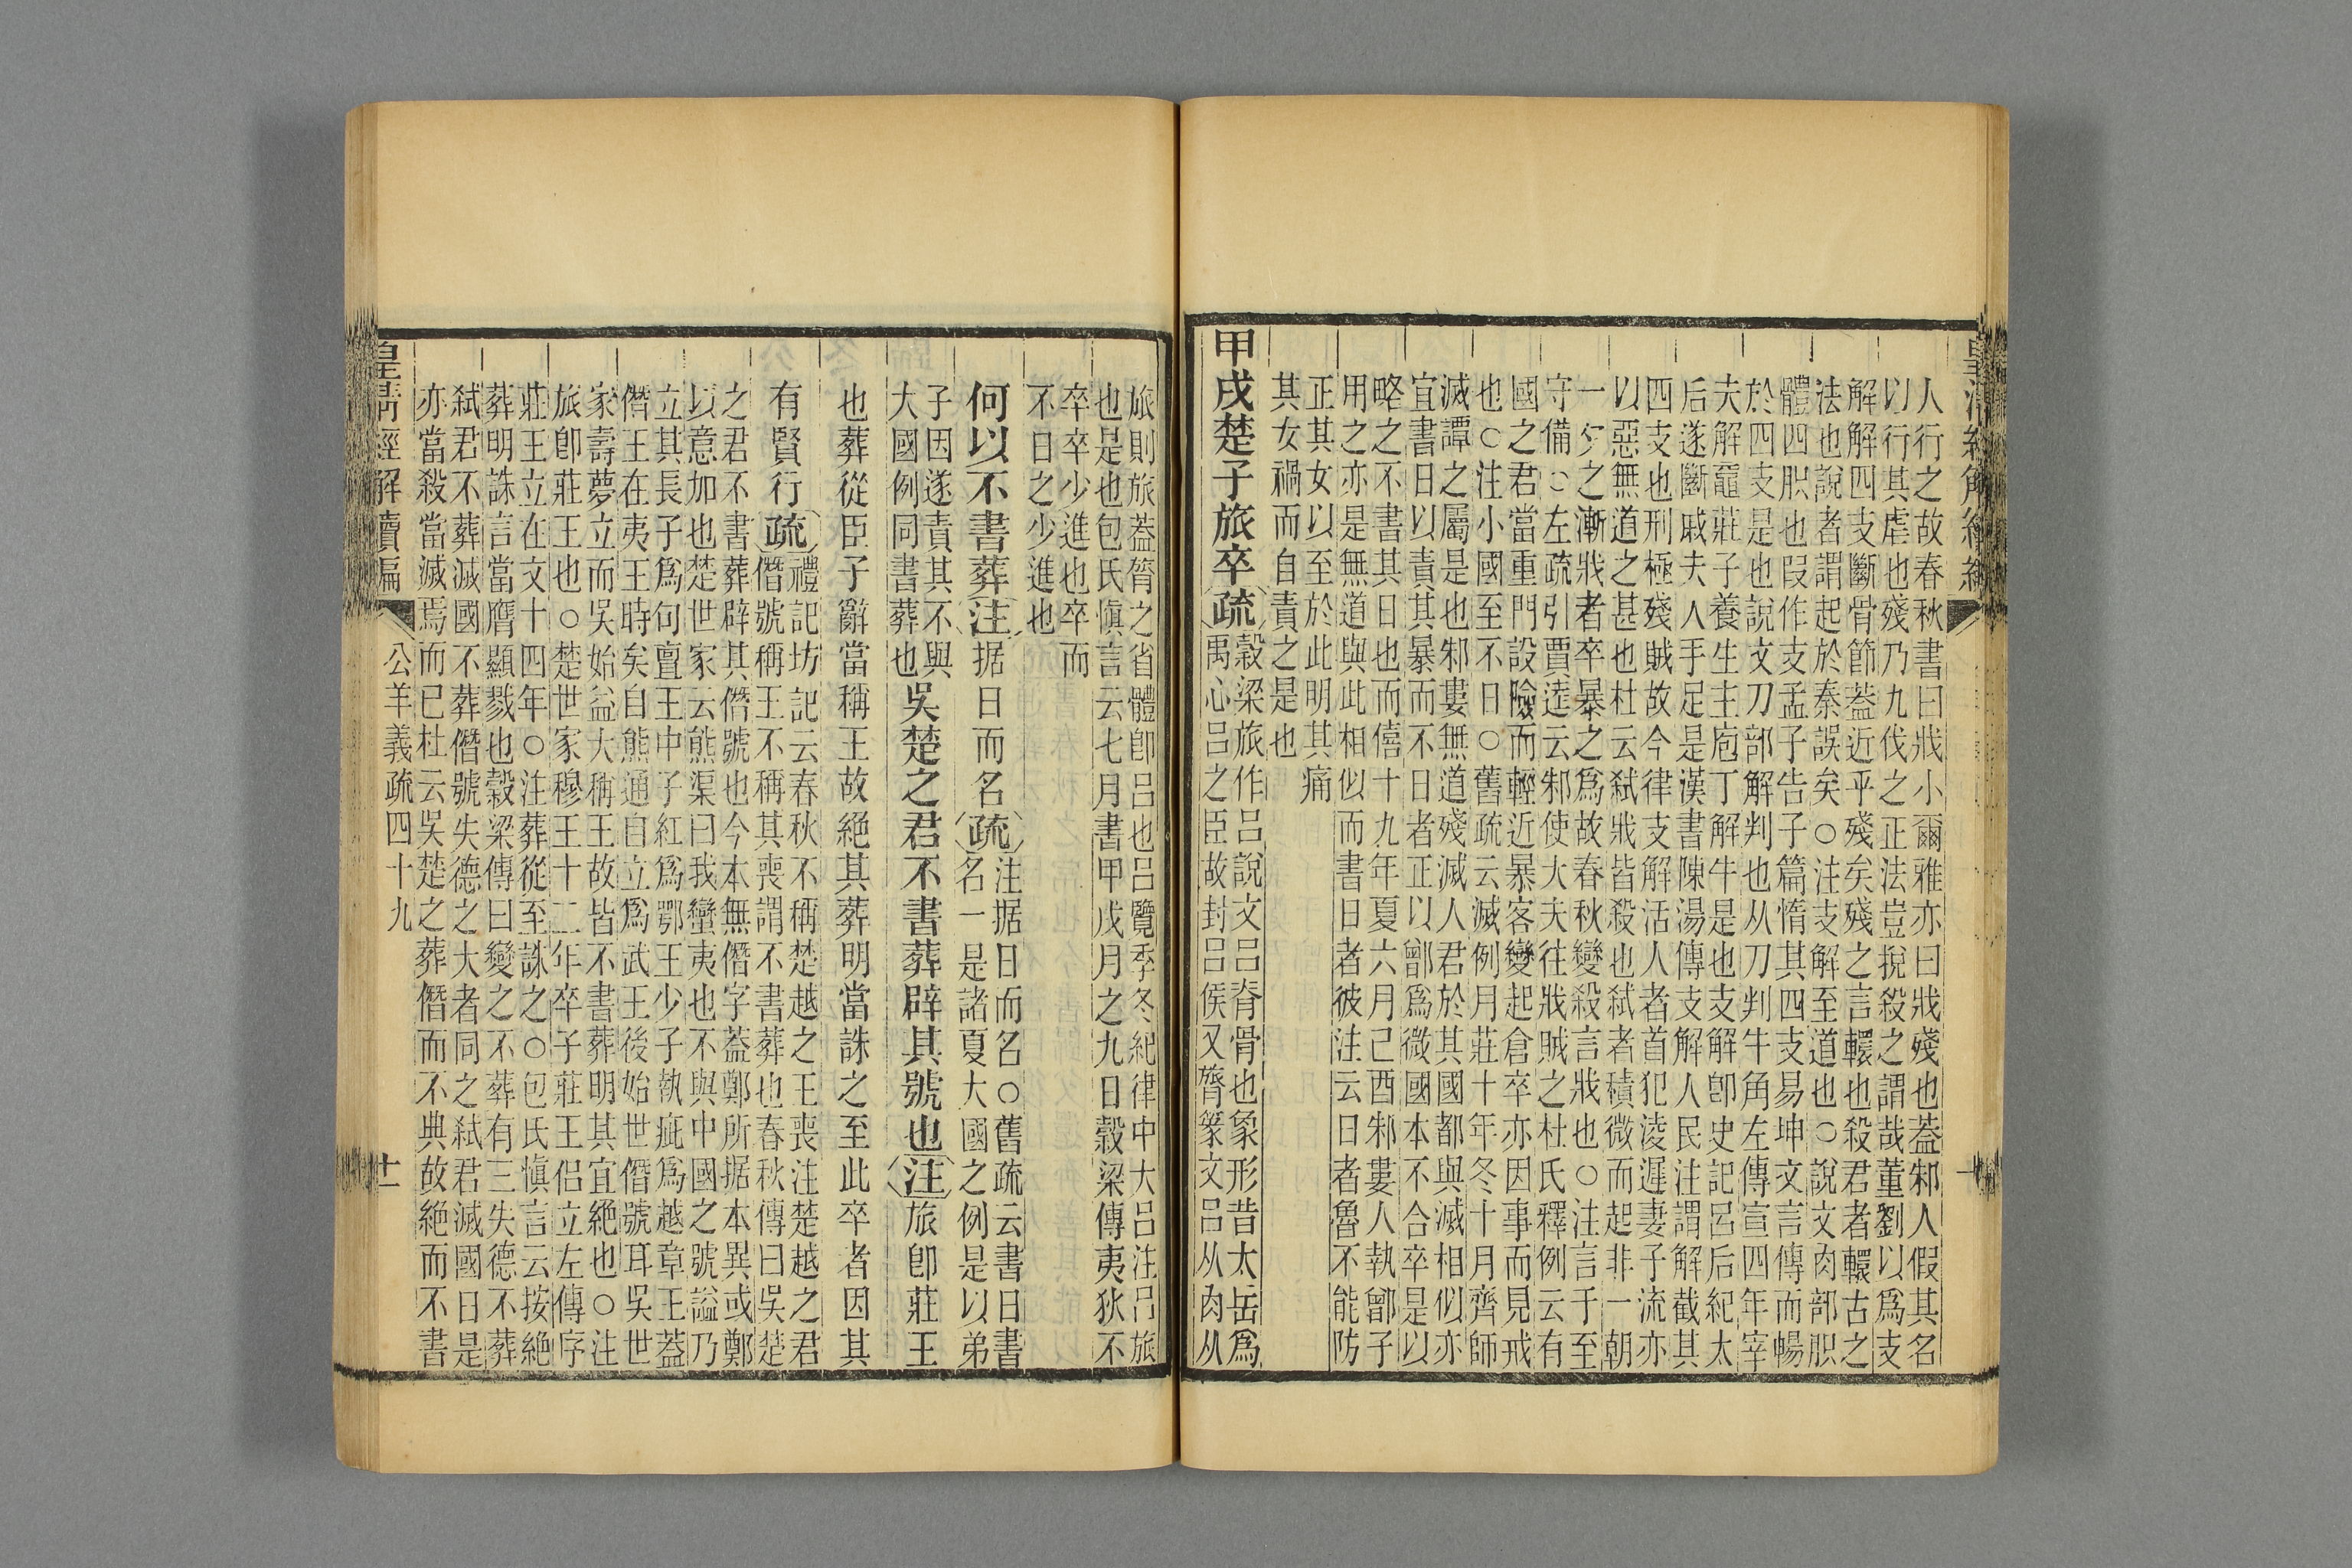 人行之故春秋書曰戕小爾雅亦曰戕殘也蓋邾人假其名
以行其虐也殘乃九伐之正法豈挩殺之謂哉董劉以爲支
解解四支斷骨節蓋近乎殘矣殘之言轘也殺君者轘古之
法也說者謂起於秦誤矣○注支解至道也○說文肉部胑
體四胑也叚作支孟子告子篇惰其四支易坤文言傳而暢
於四支是也說文刀部解判也从刀判牛角左傳宣四年宰
夫解黿莊子養生主庖丁解牛是也支解卽史記呂后紀太
后遂斷戚夫人手足是漢書陳湯傳支解人民注謂解截其
四支也刑極殘賊故今律支解活人者首犯淩遲妻子流亦
以惡無道之甚也杜云弑戕皆殺也弑者積微而起非一朝
一夕之漸戕者卒暴之爲故春秋變殺言戕也○注言于至
守備○左疏引賈逵云邾使大夫往戕賊之杜氏釋例云有
國之君當重門設險而輕近暴客變起倉卒亦因事而見戒
也○注小國至不日○舊疏云滅例月莊十年冬十月齊師
滅譚之屬是也邾婁無道殘滅人君於其國都與滅相似亦
宜書日以責其暴而不日者正以鄫爲微國本不合卒是以
略之不書其日也而僖十九年夏六月己酉邾婁人執鄫子
用之亦是無道與此相似而書日者彼注云日者魯不能防
正其女以至於此明其痛
其女禍而自責之是也
甲戌楚子旅卒疏穀梁旅作呂說文呂脊骨也象形昔太岳爲
禹心呂之臣故封呂侯又膂篆文呂从肉从
旅則旅蓋膂之省體卽呂也呂覽季冬紀律中大呂注呂旅
也是也包氏愼言云七月書甲戌月之九日穀梁傳夷狄不
卒卒少進也卒而
不日之少進也
何以不書葬注据日而名疏注据日而名○舊疏云書日書
名一是諸夏大國之例是以弟
子因遂責其不與
大國例同書葬也
吳楚之君不書葬辟其號也注旅卽莊王
也葬從臣子辭當稱王故絕其葬明當誅之至此卒者因其
有賢行疏禮記坊記云春秋不稱楚越之王喪注楚越之君
僭號稱王不稱其喪謂不書葬也春秋傳曰吳楚
之君不書葬辟其僭號也今本無僭字蓋鄭所据本異或鄭
以意加也楚世家云熊渠曰我蠻夷也不與中國之號謚乃
立其長子爲句亶王中子紅爲鄂王少子執疵爲越章王蓋
僭王在夷王時矣自熊通自立爲武王後始世僭號耳吳世
家壽夢立而吳始益大稱王故皆不書葬明其宜絕也○注
旅卽莊王也○楚世家穆王十二年卒子莊王侶立左傳序
莊王立在文十四年○注葬從至誅之○包氏愼言云按絕
葬明誅言當膺顯戮也穀梁傳曰變之不葬有三失德不葬
弑君不葬滅國不葬僭號失德之大者同之弑君滅國日是
亦當殺當滅焉而已杜云吳楚之葬僭而不典故絕而不書
皇淸經解續編
公羊義疏四十九
十一